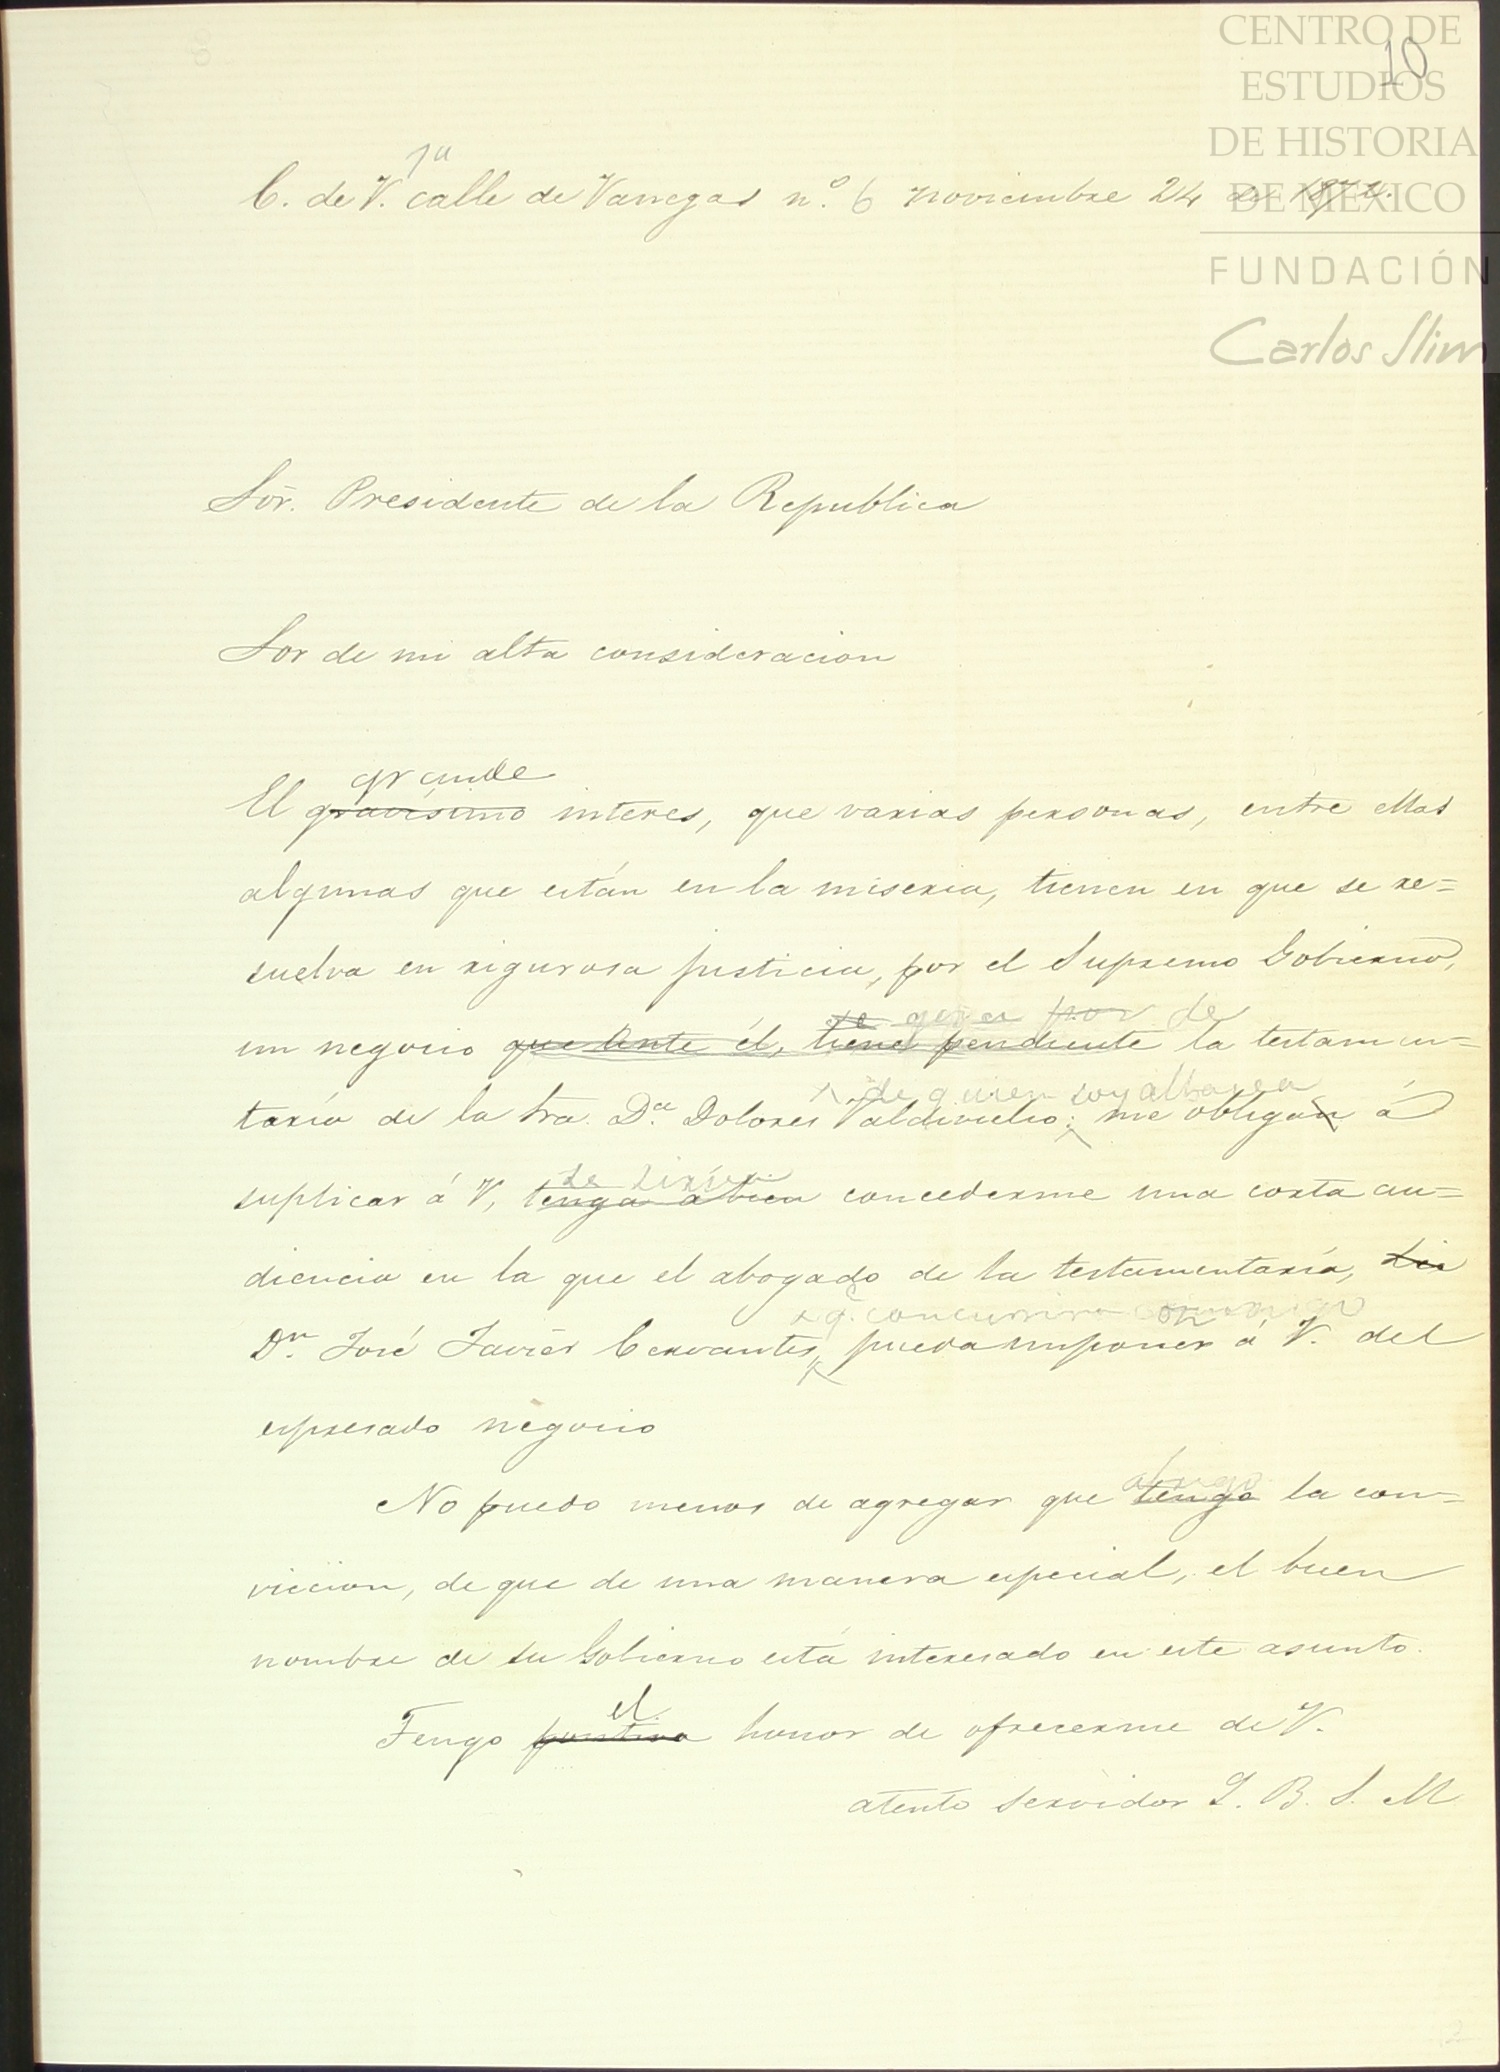 CENTRO DE
ESTUDIOS
DE HISTORIA
DE MÉXICO
FUNDACIÓN
Carlos Slim
10
1a
C. de V. calle de Vanegas n.o 6 noviembre 24 de
Sor. Presidente de la Republica
Sor de mi alta consideracion
grande
El gravisimo interes, que varias personas, entre ellas
algunas que están en la miseria, tienen en que se re=
suelva en rigurosa justicia, por el Supremo Gobierno,
se por de
un negocio que Ante él, tiene pendiente la testamen=
de quien soy albacea
taría de la Sra. Da. Dolores Valdivielso; me obligan á
se sirva
suplicar á V, tenga a bien concederme una corta au=
diencia en la que el abogado de la testamentaría, Lic
q. concurrira conmigo
Dn. José Javier Cervantes, pueda imponer á V. del
espresado negocio
abrigo
No puedo menos de agregar que tengo la con=
viccion, de que de una manera especial, el buen
nombre de su Gobierno está interesado en este asunto.
el
Tengo honor de ofrecerme de V.
atento servidor Q. B. S. M